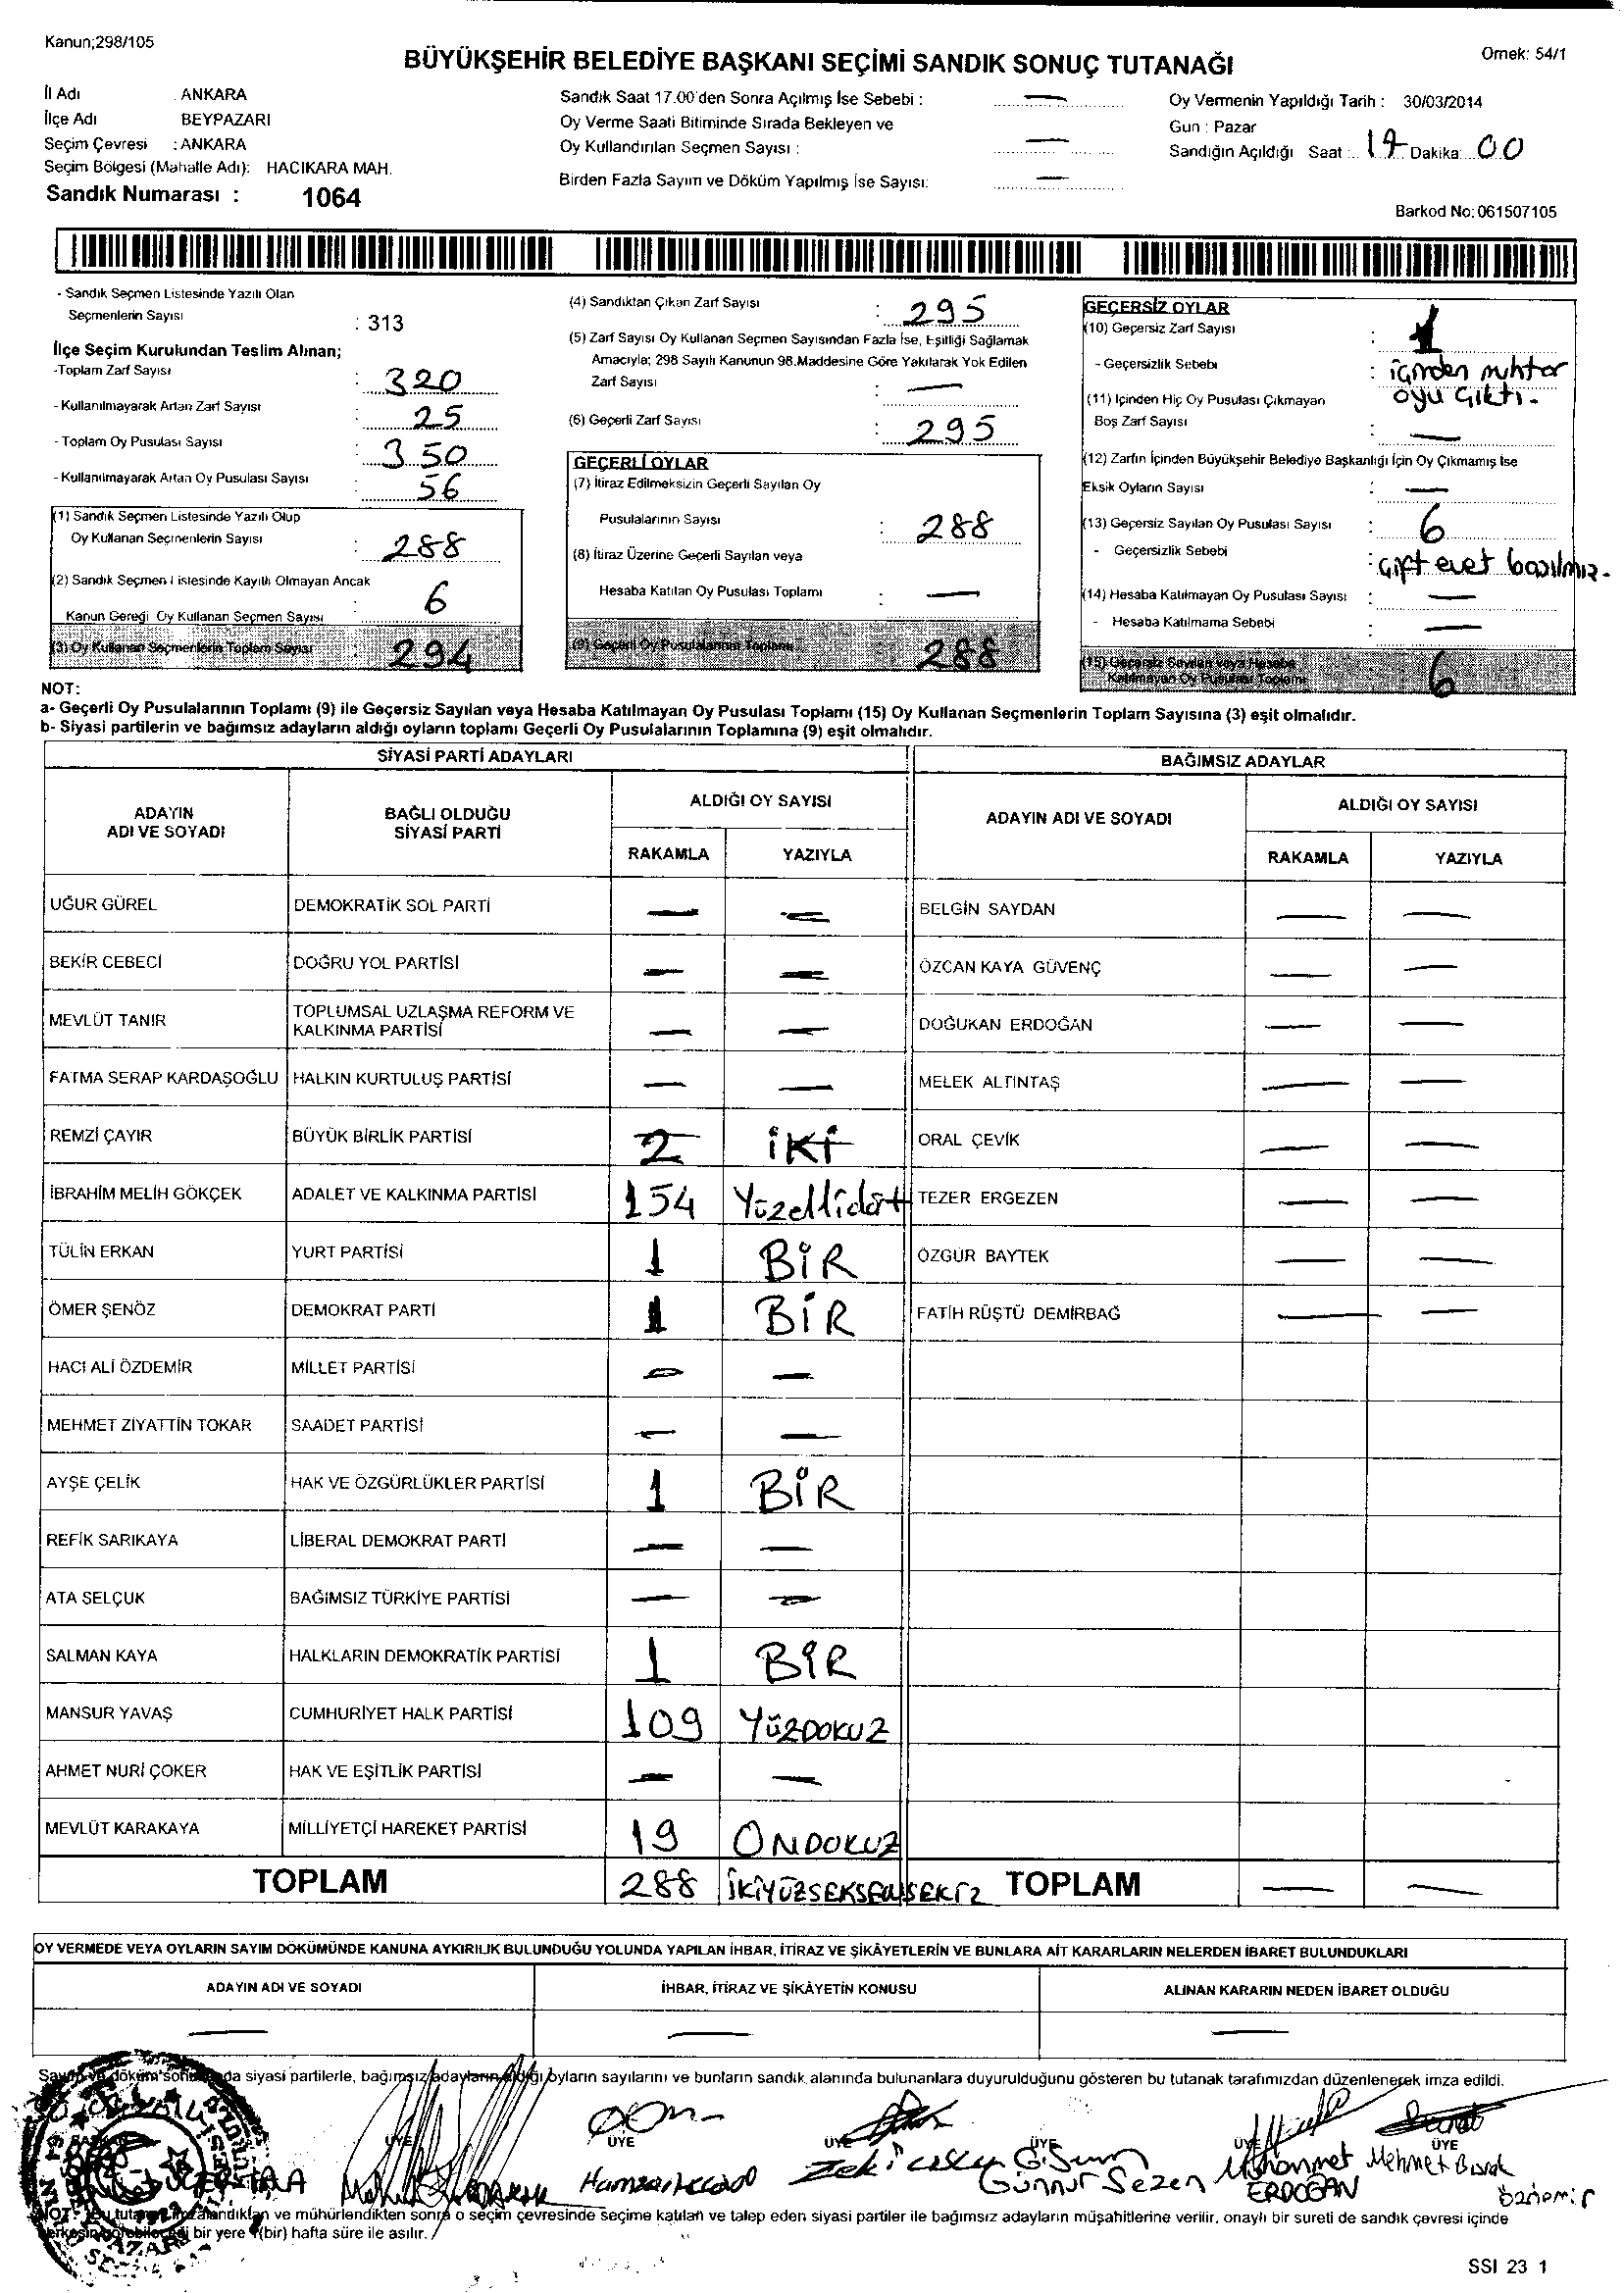 Kanun;298/105
BÜYÜKŞEHİR BELEDİYE BAŞKANI SEÇİMİ SANDIK SONUÇ TUTANAĞI
Ornek: 54/1
İl Adı : ANKARA
İlçe Adı BEYPAZARI
Seçim Çevresi : ANKARA
Seçim Bölgesi (Mahalle Adı): HACIKARA MAH.
Sandık Numarası : 1064
Sandık Saat 17.00'den Sonra Açılmış İse Sebebi : —
Oy Verme Saati Bitiminde Sırada Bekleyen ve
Oy Kullandırılan Seçmen Sayısı : —
Birden Fazla Sayım ve Döküm Yapılmış İse Sayısı: —
Oy Vermenin Yapıldığı Tarih : 30/03/2014
Gun : Pazar
Sandığın Açıldığı Saat : 17 Dakika: 00
Barkod No: 061507105
- Sandık Seçmen Listesinde Yazılı Olan
Seçmenlerin Sayısı : 313
İlçe Seçim Kurulundan Teslim Alınan;
-Toplam Zarf Sayısı : 320
- Kullanılmayarak Artan Zarf Sayısı : 25
- Toplam Oy Pusulası Sayısı : 350
- Kullanılmayarak Artan Oy Pusulası Sayısı : 56
(1) Sandık Seçmen Listesinde Yazılı Olup
Oy Kullanan Seçmenlerin Sayısı : 288
(2) Sandık Seçmen Listesinde Kayıtlı Olmayan Ancak
Kanun Gereği Oy Kullanan Seçmen Sayısı : 6
(3) Oy Kullanan Seçmenlerin Toplam Sayısı 294
(4) Sandıktan Çıkan Zarf Sayısı : 295
(5) Zarf Sayısı Oy Kullanan Seçmen Sayısından Fazla İse, Eşitliği Sağlamak
Amacıyla; 298 Sayılı Kanunun 98.Maddesine Göre Yakılarak Yok Edilen
Zarf Sayısı : —
(6) Geçerli Zarf Sayısı : 295
GEÇERLİ OYLAR
(7) İtiraz Edilmeksizin Geçerli Sayılan Oy
Pusulalarının Sayısı : 288
(8) İtiraz Üzerine Geçerli Sayılan veya
Hesaba Katılan Oy Pusulası Toplamı : —
(9) Geçerli Oy Pusulalarının Toplamı 288
GEÇERSİZ OYLAR
(10) Geçersiz Zarf Sayısı : 1
- Geçersizlik Sebebi : içinden muhtar
oyu çıktı.
(11) İçinden Hiç Oy Pusulası Çıkmayan
Boş Zarf Sayısı : —
(12) Zarfın İçinden Büyükşehir Belediye Başkanlığı İçin Oy Çıkmamış İse
Eksik Oyların Sayısı : —
(13) Geçersiz Sayılan Oy Pusulası Sayısı : 6
- Geçersizlik Sebebi : çift evet basılmış.
(14) Hesaba Katılmayan Oy Pusulası Sayısı : —
- Hesaba Katılmama Sebebi : —
(15) Geçersiz Sayılan veya Hesaba
Katılmayan Oy Pusulası Toplamı 6
NOT:
a- Geçerli Oy Pusulalarının Toplamı (9) ile Geçersiz Sayılan veya Hesaba Katılmayan Oy Pusulası Toplamı (15) Oy Kullanan Seçmenlerin Toplam Sayısına (3) eşit olmalıdır.
b- Siyasi partilerin ve bağımsız adayların aldığı oyların toplamı Geçerli Oy Pusulalarının Toplamına (9) eşit olmalıdır.
SİYASİ PARTİ ADAYLARI BAĞIMSIZ ADAYLAR
ADAYIN ADI VE SOYADI BAĞLI OLDUĞU SİYASİ PARTİ ALDIĞI OY SAYISI ADAYIN ADI VE SOYADI ALDIĞI OY SAYISI
RAKAMLA YAZIYLA RAKAMLA YAZIYLA
UĞUR GÜREL DEMOKRATİK SOL PARTİ — — BELGİN SAYDAN — —
BEKİR CEBECİ DOĞRU YOL PARTİSİ — — ÖZCAN KAYA GÜVENÇ — —
MEVLÜT TANIR TOPLUMSAL UZLAŞMA REFORM VE KALKINMA PARTİSİ — — DOĞUKAN ERDOĞAN — —
FATMA SERAP KARDAŞOĞLU HALKIN KURTULUŞ PARTİSİ — — MELEK ALTINTAŞ — —
REMZİ ÇAYIR BÜYÜK BİRLİK PARTİSİ 2 İKİ ORAL ÇEVİK — —
İBRAHİM MELİH GÖKÇEK ADALET VE KALKINMA PARTİSİ 154 Yüzellidört TEZER ERGEZEN — —
TÜLİN ERKAN YURT PARTİSİ 1 BİR ÖZGÜR BAYTEK — —
ÖMER ŞENÖZ DEMOKRAT PARTİ 1 BİR FATİH RÜŞTÜ DEMİRBAĞ — —
HACI ALİ ÖZDEMİR MİLLET PARTİSİ — —
MEHMET ZİYATTİN TOKAR SAADET PARTİSİ — —
AYŞE ÇELİK HAK VE ÖZGÜRLÜKLER PARTİSİ 1 BİR
REFİK SARIKAYA LİBERAL DEMOKRAT PARTİ — —
ATA SELÇUK BAĞIMSIZ TÜRKİYE PARTİSİ — —
SALMAN KAYA HALKLARIN DEMOKRATİK PARTİSİ 1 BİR
MANSUR YAVAŞ CUMHURİYET HALK PARTİSİ 109 YÜZDOKUZ
AHMET NURİ ÇOKER HAK VE EŞİTLİK PARTİSİ — —
MEVLÜT KARAKAYA MİLLİYETÇİ HAREKET PARTİSİ 19 ONDOKUZ
TOPLAM 288 İKİYÜZSEKSENSEKİZ TOPLAM — —
OY VERMEDE VEYA OYLARIN SAYIM DÖKÜMÜNDE KANUNA AYKIRILIK BULUNDUĞU YOLUNDA YAPILAN İHBAR, İTİRAZ VE ŞİKÂYETLERİN VE BUNLARA AİT KARARLARIN NELERDEN İBARET BULUNDUKLARI
ADAYIN ADI VE SOYADI İHBAR, İTİRAZ VE ŞİKÂYETİN KONUSU ALINAN KARARIN NEDEN İBARET OLDUĞU
— — —
Sayım ve döküm sonunda siyasi partilerle, bağımsız adayların aldığı oyların sayılarını ve bunların sandık alanında bulunanlara duyurulduğunu gösteren bu tutanak tarafımızdan düzenlenerek imza edildi.
ÜYE ÜYE ÜYE ÜYE ÜYE ÜYE
Zeki Günnur Sezen Muhammet ERDOĞAN Mehmet Burak Özdemir
NOT: Bu tutanak imzalandıktan ve mühürlendikten sonra o seçim çevresinde seçime katılan ve talep eden siyasi partiler ile bağımsız adayların müşahitlerine verilir, onaylı bir sureti de sandık çevresi içinde
herkesin görebileceği bir yere 1(bir) hafta süre ile asılır.
SSI 23 1